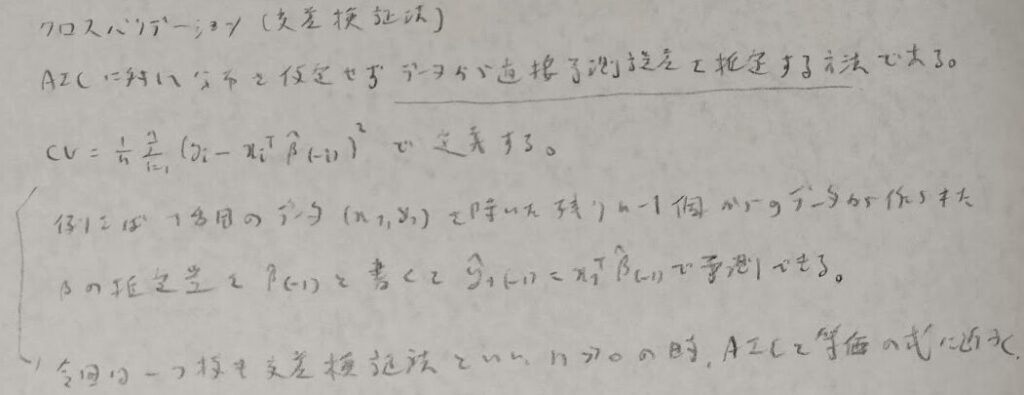 クロスバリデーション(交差検証法)
AICに対し分布を仮定せずデータから直接予測誤差を推定する方法である。
CV = 1/n Σ_{i=1}^n (y_i − x_i^T β̂_(-i))^2 で定義する。
例えば1番目のデータ(x_1, y_1)を除いた残りn-1個からのデータから作られた
βの推定量をβ̂_(-1)と書くとŷ_1(-1) = x_1^T β̂_(-1)で予測できる。
今回は一つ抜き交差検証法といい、n≫0の時、AICと等価の式に近づく